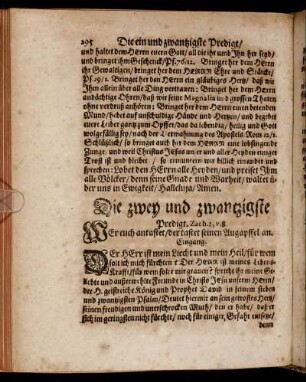 295 Die ein und zwantzigste Predigt/
und haltet dem HErrn euren Gott/ all die ihr umb Ihn her seyd/
und bringet ihm Geschenck/ Ps. 76. 12. Bringet her dem HErrn
ihr Gewaltigen/ bringet her dem HErrn Ehre und Stärcke/
Ps. 29/1. Bringet her dem HErrn ein gläubiges Hertz/ daß wir
Ihm allein über alle Ding vertrauen: Bringet her dem HErrn
andächtige Ohren/ daß wir seine Magnalia und grossen Thaten
ohne verdruß anhören: Bringet her dem HErrn einen betenden
Mund/ hebet auf unschuldige Hände und Hertzen/ und begebet
euere Leiber gantz zum Opffer/ das da lebendig/ heilig und Gott
wolgefällig sey/ nach der Vermahnung des Apostels Rom. 12/1.
Schlüßlich/ so bringet auch her dem HErrn eine lobsingende
Zunge/ und weil Christus JEsus unser und aller Heyden einiger
Trost ist und bleibet/ so ermuntern wir billich einander und
sprechen: Lobet den HErrn alle Heyden/ und preiset Ihn
alle Völcker/ denn seine Gnade und Warheit/ waltet ü-
ber uns in Ewigkeit/ Halleluja/ Amen.
Die zwey und zwantzigste
Predigt/ Zach. 2, v. 8.
Wer euch antastet/ der tastet seinen Augapffel an.
Eingang.
DEr HErr ist mein Liecht und mein Heil/ für wem
solt ich mich fürchten? Der HErr ist meines Lebens
Krafft/ für wem solt mir grauen? spricht ihr meine Ge-
liebte und außerwehlte Freunde in Christo JEsu unserm HErrn/
der H. geistreiche König und Prophet David in seinem sieben
und zwantzigsten Psalm/ Deutet hiermit an sein getrostes Hertz/
seinen freudigen und unerschrocknen Muth/ den er habe/ daß er
sich im geringsten nicht fürchte/ noch für einiger Gefahr entsetze/
denn